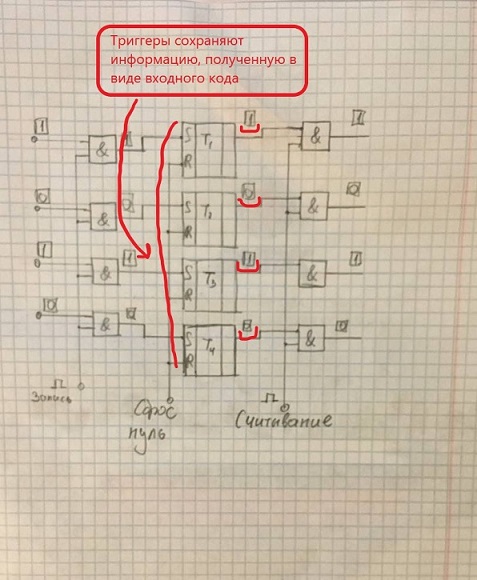 Триггеры сохраняют
информацию, полученную в
виде входного кода
1 & 1 S T1 1 & 1
R
0 & 0 S T2 0 & 0
R
1 & 1 S T3 1 & 1
R
0 & 0 S T4 0 & 0
R
Запись
Сброс
нуль
Считывание